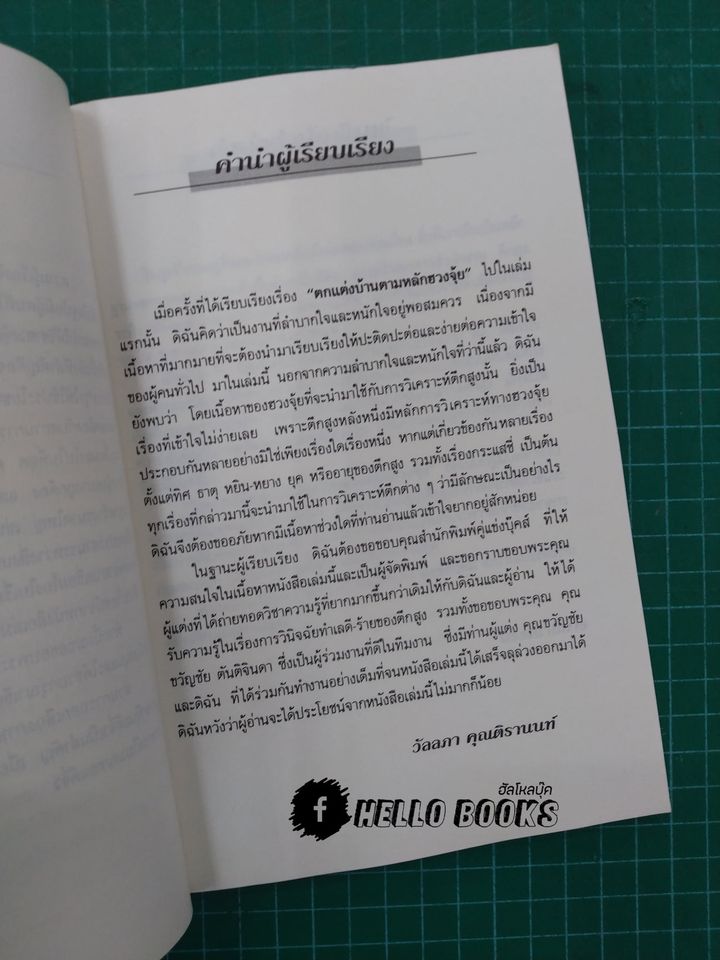 คำนำผู้เรียบเรียง
เมื่อครั้งที่ได้เรียบเรียงเรื่อง "ตกแต่งบ้านตามหลักฮวงจุ้ย" ไปในเล่ม
แรกนั้น ดิฉันคิดว่าเป็นงานที่ลำบากใจและหนักใจอยู่พอสมควร เนื่องจากมี
เนื้อหาที่มากมายที่จะต้องนำมาเรียบเรียงให้ปะติดปะต่อและง่ายต่อความเข้าใจ
ของผู้คนทั่วไป มาในเล่มนี้ นอกจากความลำบากใจและหนักใจที่ว่านี้แล้ว ดิฉัน
ยังพบว่า โดยเนื้อหาของฮวงจุ้ยที่จะนำมาใช้กับการวิเคราะห์ตึกสูงนั้น ยิ่งเป็น
เรื่องที่เข้าใจไม่ง่ายเลย เพราะตึกสูงหลังหนึ่งมีหลักการวิเคราะห์ทางฮวงจุ้ย
ประกอบกันหลายอย่างมิใช่เพียงเรื่องใดเรื่องหนึ่ง หากแต่เกี่ยวข้องกันหลายเรื่อง
ตั้งแต่ทิศ ธาตุ หยิน-หยาง ยุค หรืออายุของตึกสูง รวมทั้งเรื่องกระแสชี่ เป็นต้น
ทุกเรื่องที่กล่าวมานี้จะนำมาใช้ในการวิเคราะห์ตึกต่าง ๆ ว่ามีลักษณะเป็นอย่างไร
ดิฉันจึงต้องขออภัยหากมีเนื้อหาช่วงใดที่ท่านอ่านแล้วเข้าใจยากอยู่สักหน่อย
ในฐานะผู้เรียบเรียง ดิฉันต้องขอขอบคุณสำนักพิมพ์คู่แข่งบุ๊คส์ ที่ให้
ความสนใจในเนื้อหาหนังสือเล่มนี้และเป็นผู้จัดพิมพ์ และขอกราบขอบพระคุณ
ผู้แต่งที่ได้ถ่ายทอดวิชาความรู้ที่ยากมากขึ้นกว่าเดิมให้กับดิฉันและผู้อ่าน ให้ได้
รับความรู้ในเรื่องการวินิจฉัยทำเลดี-ร้ายของตึกสูง รวมทั้งขอขอบพระคุณ คุณ
ขวัญชัย ตันติจินดา ซึ่งเป็นผู้ร่วมงานที่ดีในทีมงาน ซึ่งมีท่านผู้แต่ง คุณขวัญชัย
และดิฉัน ที่ได้ร่วมกันทำงานอย่างเต็มที่จนหนังสือเล่มนี้ได้เสร็จลุล่วงออกมาได้
ดิฉันหวังว่าผู้อ่านจะได้ประโยชน์จากหนังสือเล่มนี้ไม่มากก็น้อย
วัลลภา คุณติรานนท์
ฮัลโหลบุ๊ค
f HELLO BOOKS